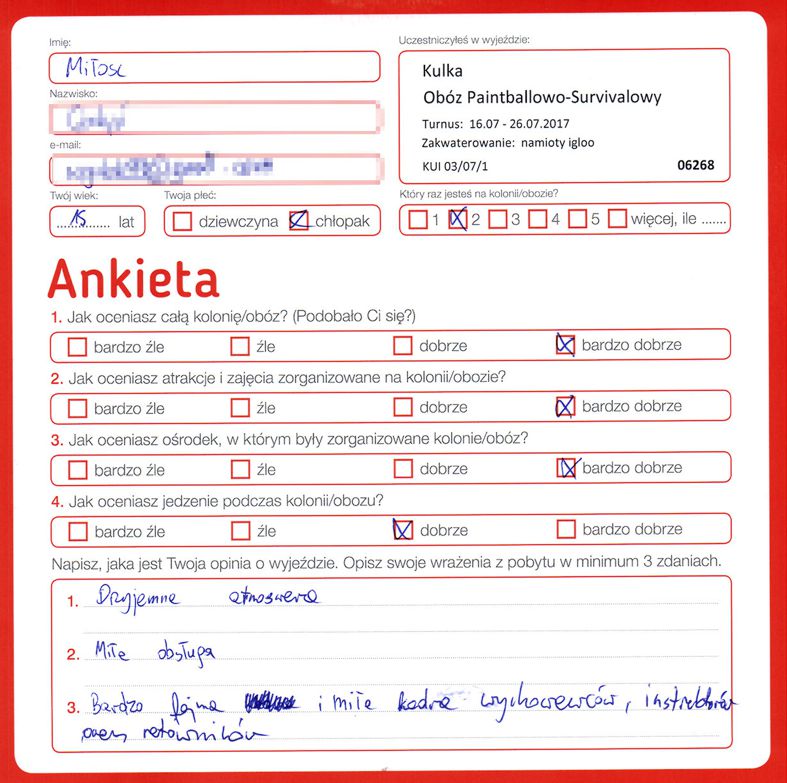 Imię:
Miłosc
Nazwisko:
e-mail:
Twój wiek:
15 lat
Twoja płeć:
dziewczyna chłopak
Uczestniczyłeś w wyjeździe:
Kulka
Obóz Paintballowo-Survivalowy
Turnus: 16.07 - 26.07.2017
Zakwaterowanie: namioty igloo
KUI 03/07/1 06268
Który raz jesteś na kolonii/obozie?
1 2 3 4 5 więcej, ile .......
Ankieta
1. Jak oceniasz całą kolonię/obóz? (Podobało Ci się?)
bardzo źle źle dobrze bardzo dobrze
2. Jak oceniasz atrakcje i zajęcia zorganizowane na kolonii/obozie?
bardzo źle źle dobrze bardzo dobrze
3. Jak oceniasz ośrodek, w którym były zorganizowane kolonie/obóz?
bardzo źle źle dobrze bardzo dobrze
4. Jak oceniasz jedzenie podczas kolonii/obozu?
bardzo źle źle dobrze bardzo dobrze
Napisz, jaka jest Twoja opinia o wyjeździe. Opisz swoje wrażenia z pobytu w minimum 3 zdaniach.
1. Przyjemna atmoswera
2. Miła obsługa
3. Bardzo fajna i miła kadra wychowawców, instruktorów
oraz ratowników